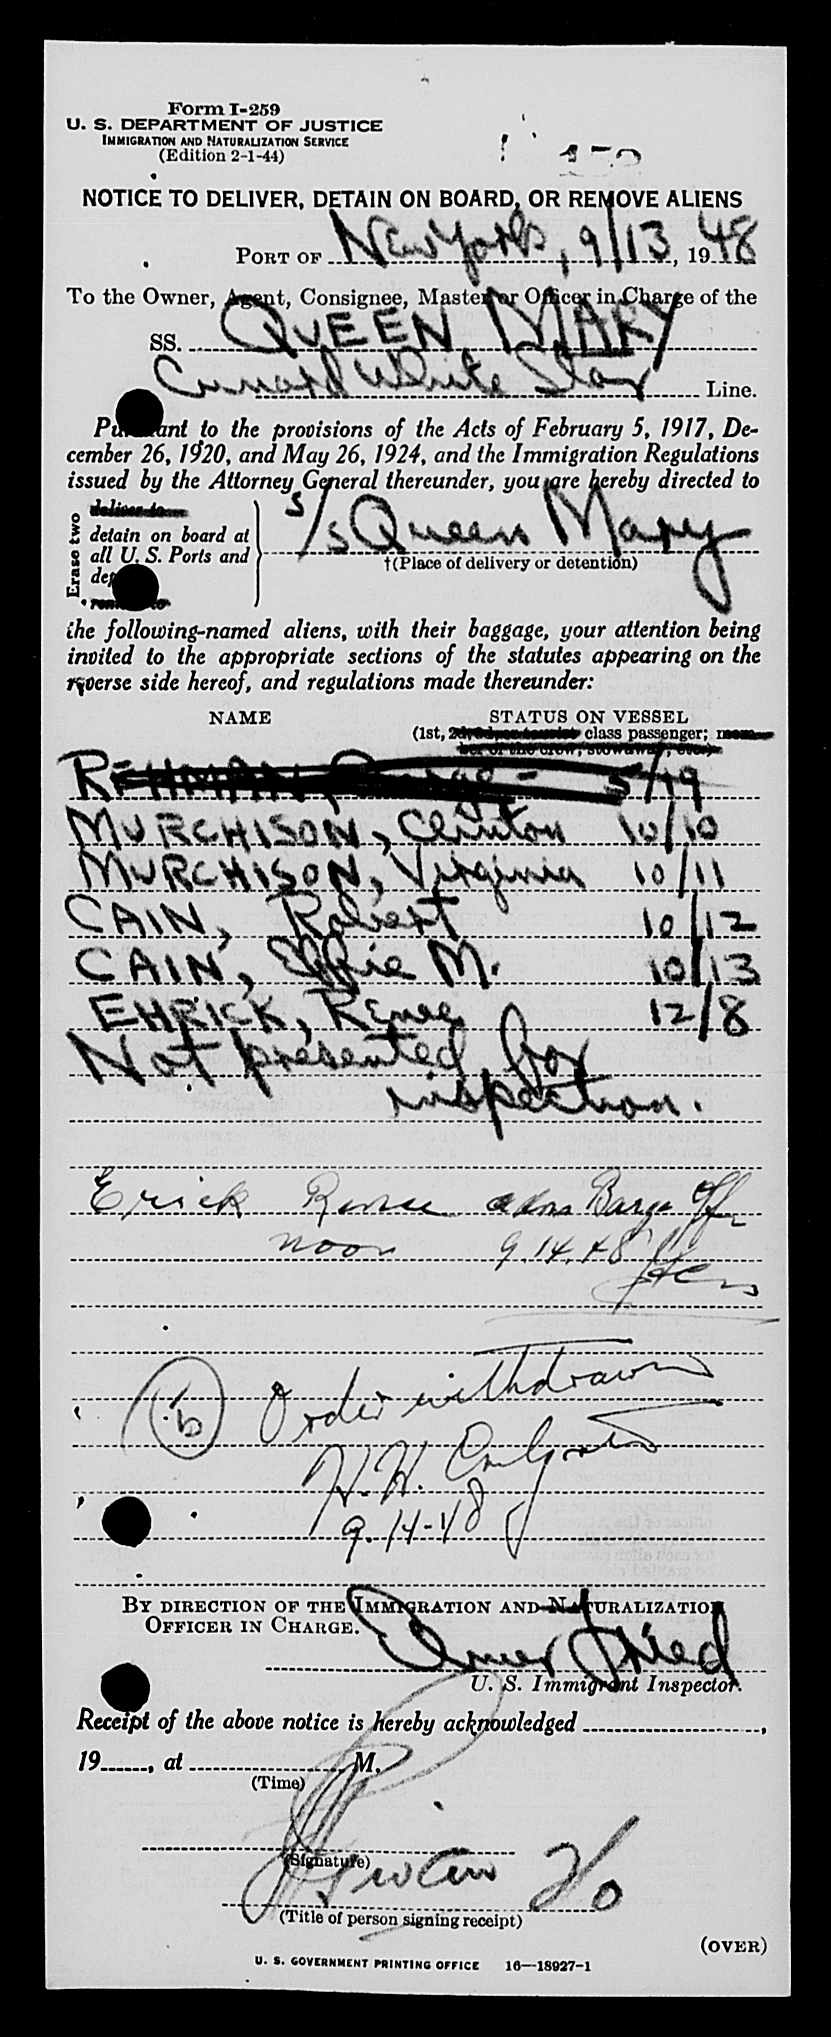 Form I-259
U. S. DEPARTMENT OF JUSTICE
IMMIGRATION AND NATURALIZATION SERVICE
(Edition 2-1-44)
NOTICE TO DELIVER, DETAIN ON BOARD, OR REMOVE ALIENS
PORT OF New York, 9/13, 1948
To the Owner, Agent, Consignee, Master or Officer in Charge of the
SS. QUEEN MARY
Cunard White Star Line.
Pursuant to the provisions of the Acts of February 5, 1917, De-
cember 26, 1920, and May 26, 1924, and the Immigration Regulations
issued by the Attorney General thereunder, you are hereby directed to
Erase two
deliver to
detain on board at
all U. S. Ports and
remove to
S/S Queen Mary
†(Place of delivery or detention)
the following-named aliens, with their baggage, your attention being
invited to the appropriate sections of the statutes appearing on the
reverse side hereof, and regulations made thereunder:
NAME STATUS ON VESSEL
(1st, class passenger;
REHMAN, 5/19
MURCHISON, Clinton 10/10
MURCHISON, Virginia 10/11
CAIN, Robert 10/12
CAIN, Effie M. 10/13
EHRICK, Renee 12/8
Not presented for
inspection.
Erick Renee Barge Off
noon 9.14.48
Order withdrawn
H. H.
9-14-48
BY DIRECTION OF THE IMMIGRATION AND NATURALIZATION
OFFICER IN CHARGE.
Elmer Fried
U. S. Immigrant Inspector.
Receipt of the above notice is hereby acknowledged ,
19 , at M.
(Time)
(Signature)
(Title of person signing receipt)
(OVER)
U. S. GOVERNMENT PRINTING OFFICE 16—18927-1